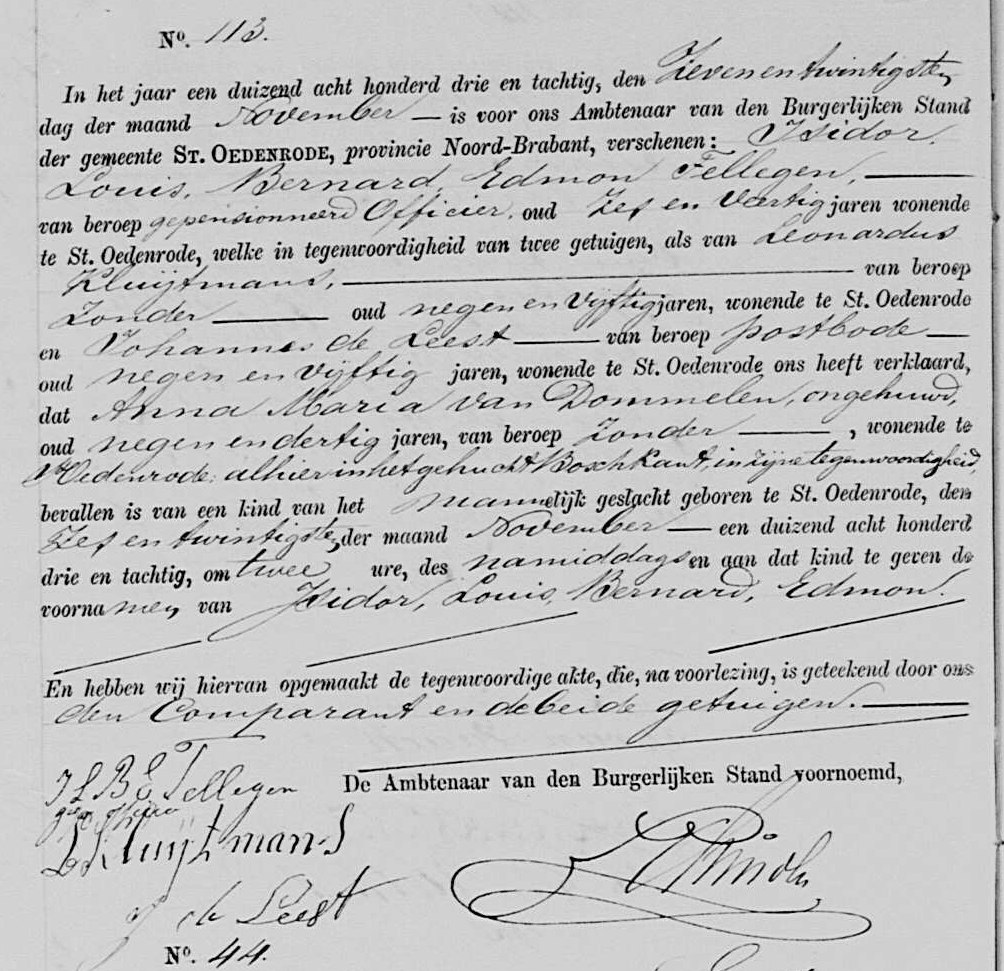 No. 113.
In het jaar een duizend acht honderd drie en tachtig, den Zevenentwintigsten
dag der maand November — is voor ons Ambtenaar van den Burgerlijken Stand
der gemeente ST. OEDENRODE, provincie Noord-Brabant, verschenen: Isidor,
Louis, Bernard, Edmon Tellegen, —
van beroep gepensionneerd Officier, oud Zes en Veertig jaren wonende
te St. Oedenrode, welke in tegenwoordigheid van twee getuigen, als van Leonardus
Kluijtmans, — van beroep
Zonder — oud negen en Vijftig jaren, wonende te St. Oedenrode
en Johannes de Leest — van beroep postbode —
oud negen en Vijftig jaren, wonende te St. Oedenrode ons heeft verklaard,
dat Anna Maria van Dommelen, ongehuwd,
oud negen en dertig jaren, van beroep Zonder — , wonende te
St Oedenrode, alhier in het gehucht Boschkant, in zijne tegenwoordigheid,
bevallen is van een kind van het mannelijk geslacht geboren te St. Oedenrode, den
Zes en twintigsten der maand November — een duizend acht honderd
drie en tachtig, om twee ure, des namiddags en aan dat kind te geven de
voornamen van Isidor, Louis, Bernard, Edmon.
En hebben wij hiervan opgemaakt de tegenwoordige akte, die, na voorlezing, is geteekend door ons
den Comparant en de beide getuigen. —
I L B E Tellegen
De Ambtenaar van den Burgerlijken Stand voornoemd,
L Kluijtmans
J de Leest
No. 44.